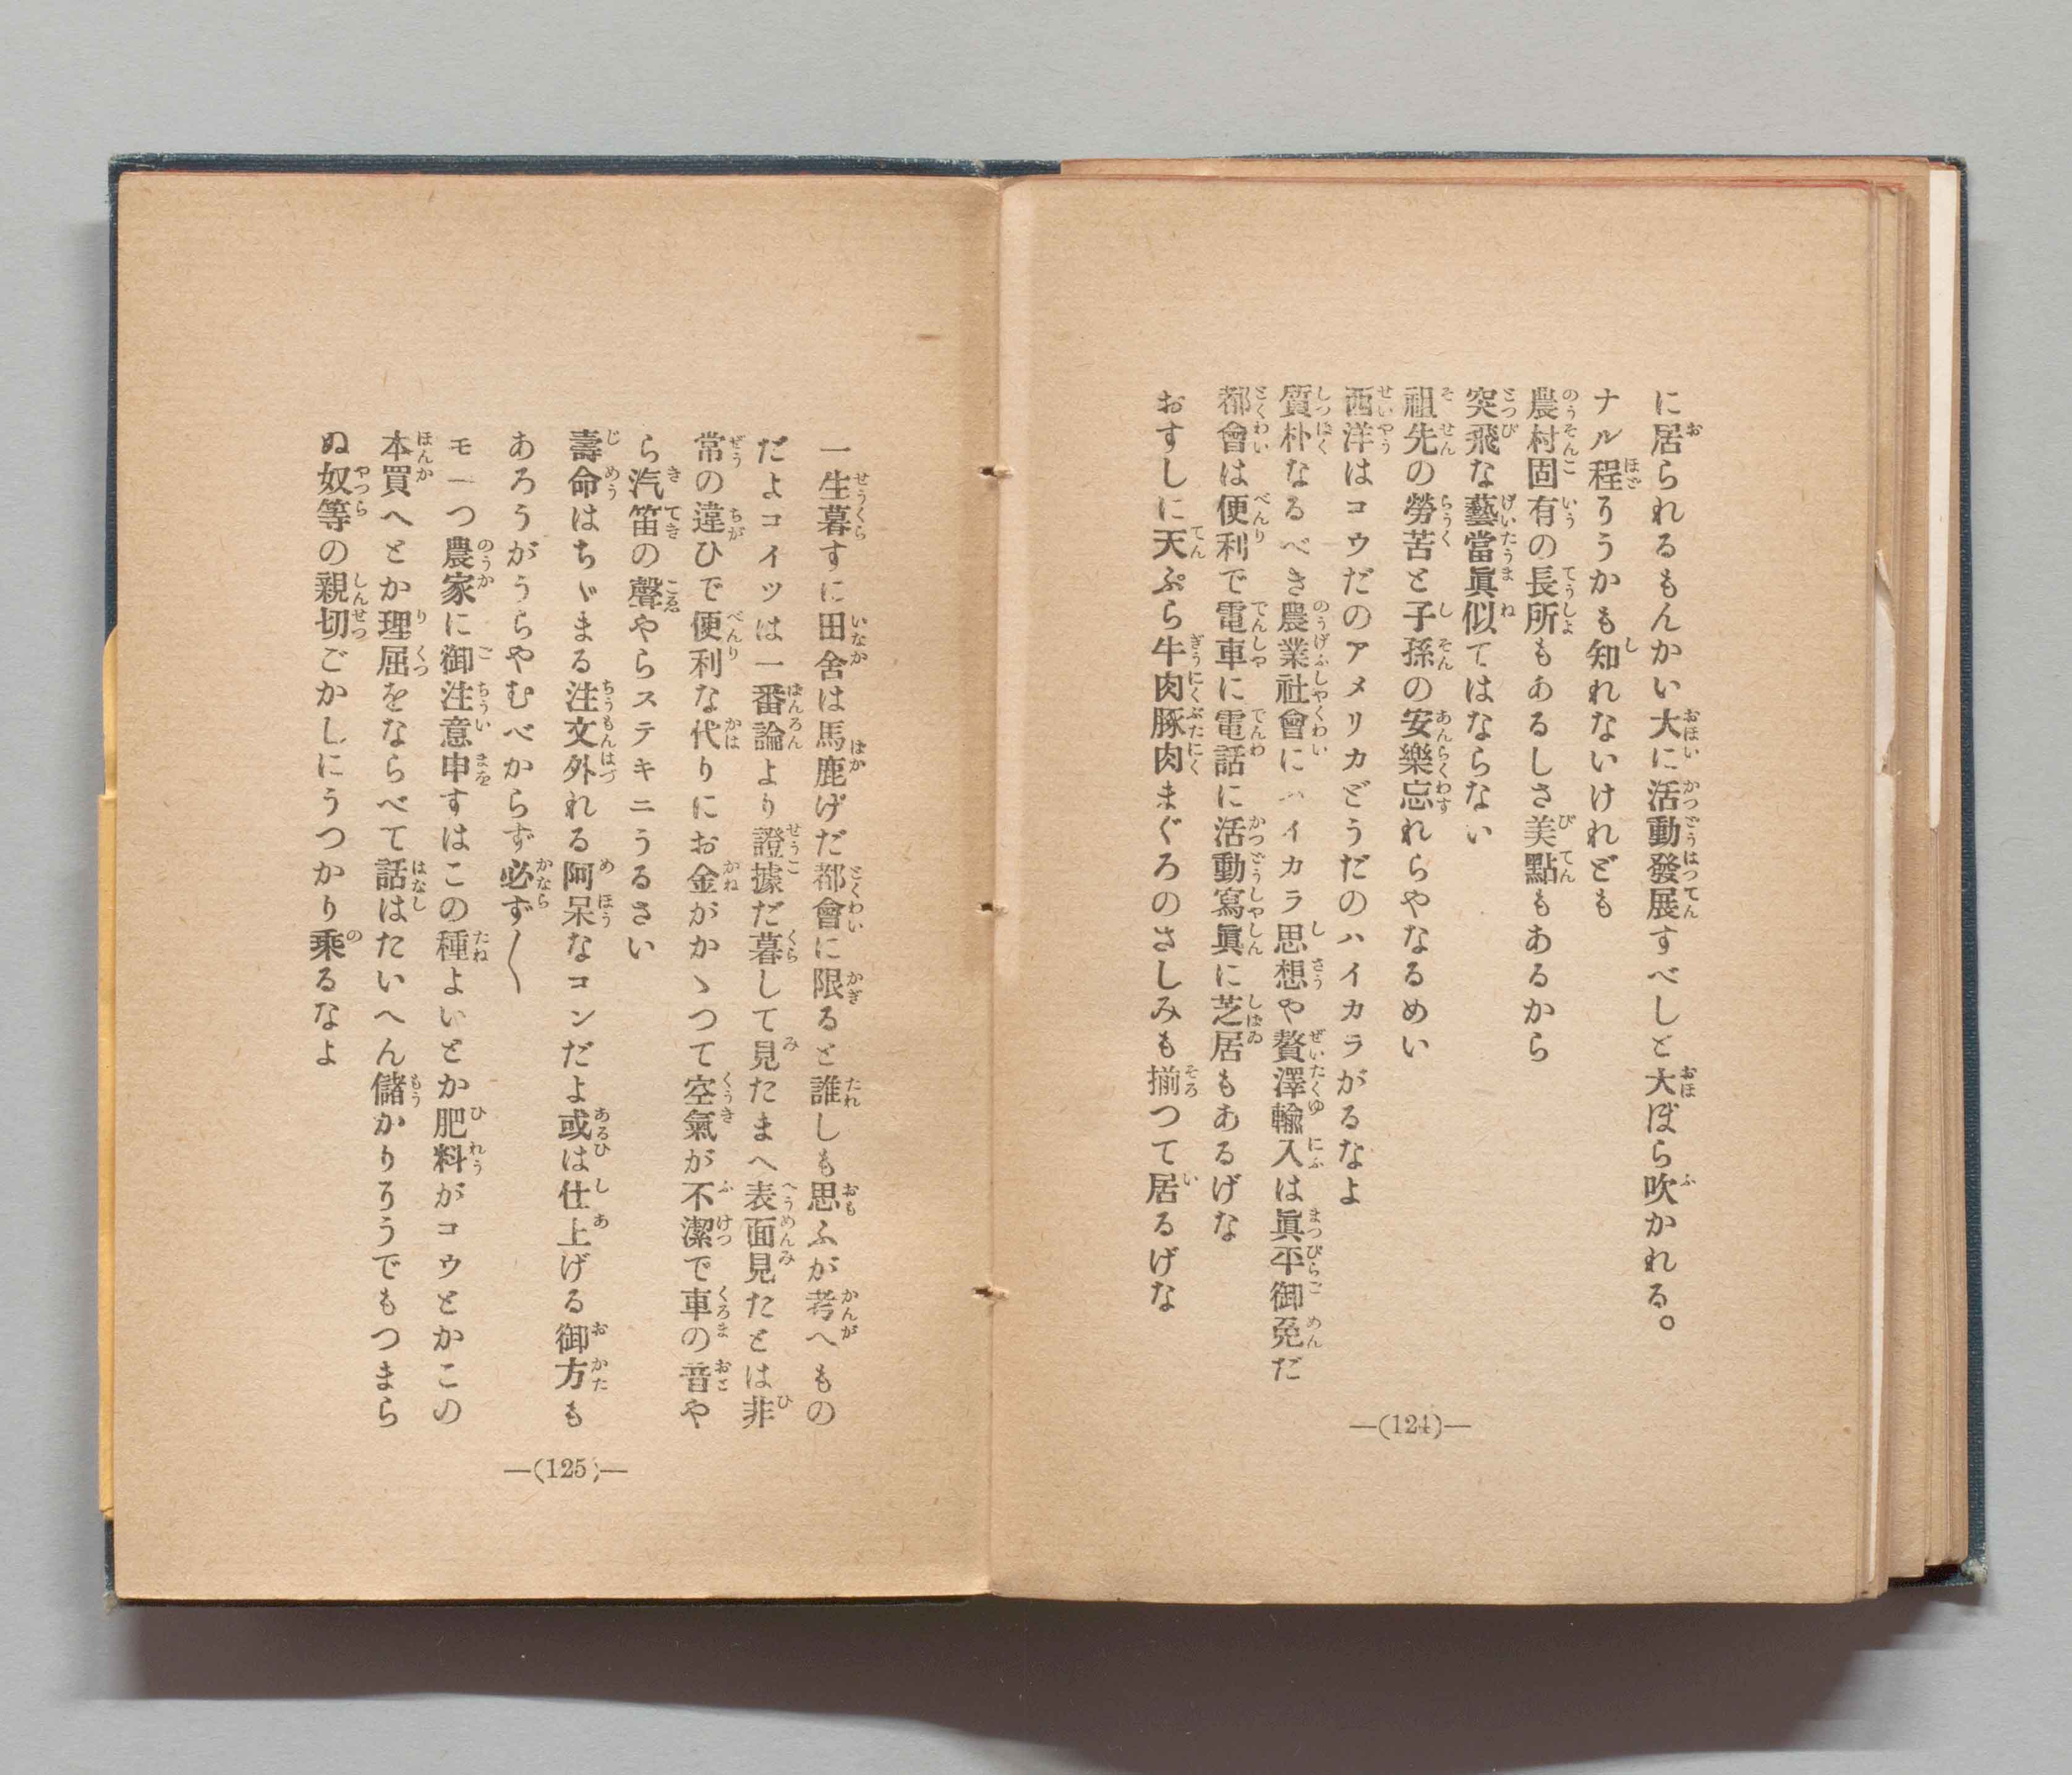 に居られるもんかい大に活動發展すべしと大ぼら吹かれる。
ナル程りうかも知れないけれども
農村固有の長所もあるしさ美點もあるから
突飛な藝當眞似てはならない
祖先の勞苦と子孫の安樂忘れらやなるめい
西洋はコウだのアメリカどうだのハイカラがるなよ
質朴なるべき農業社會にハイカラ思想や贅澤輸入は眞平御免だ
都會は便利で電車に電話に活動寫眞に芝居もあるげな
おすしに天ぷら牛肉豚肉まぐろのさしみも揃つて居るげな
―(124)―
一生暮すに田舍は馬鹿げだ都會に限ると誰しも思ふが考へもの
だよコイツは一番論より證據だ暮して見たまへ表面見たとは非
常の違ひで便利な代りにお金がかゝつて空氣が不潔で車の音や
ら汽笛の聲やらステキニうるさい
壽命はちゞまる注文外れる阿呆なコンだよ或は仕上げる御方も
あろうがうらやむべからず必ず〱
モ一つ農家に御注意申すはこの種よいとか肥料がコウとかこの
本買へとか理屈をならべて話はたいへん儲かりりうでもつまら
ぬ奴等の親切ごかしにうつかり乘るなよ
―(125)―